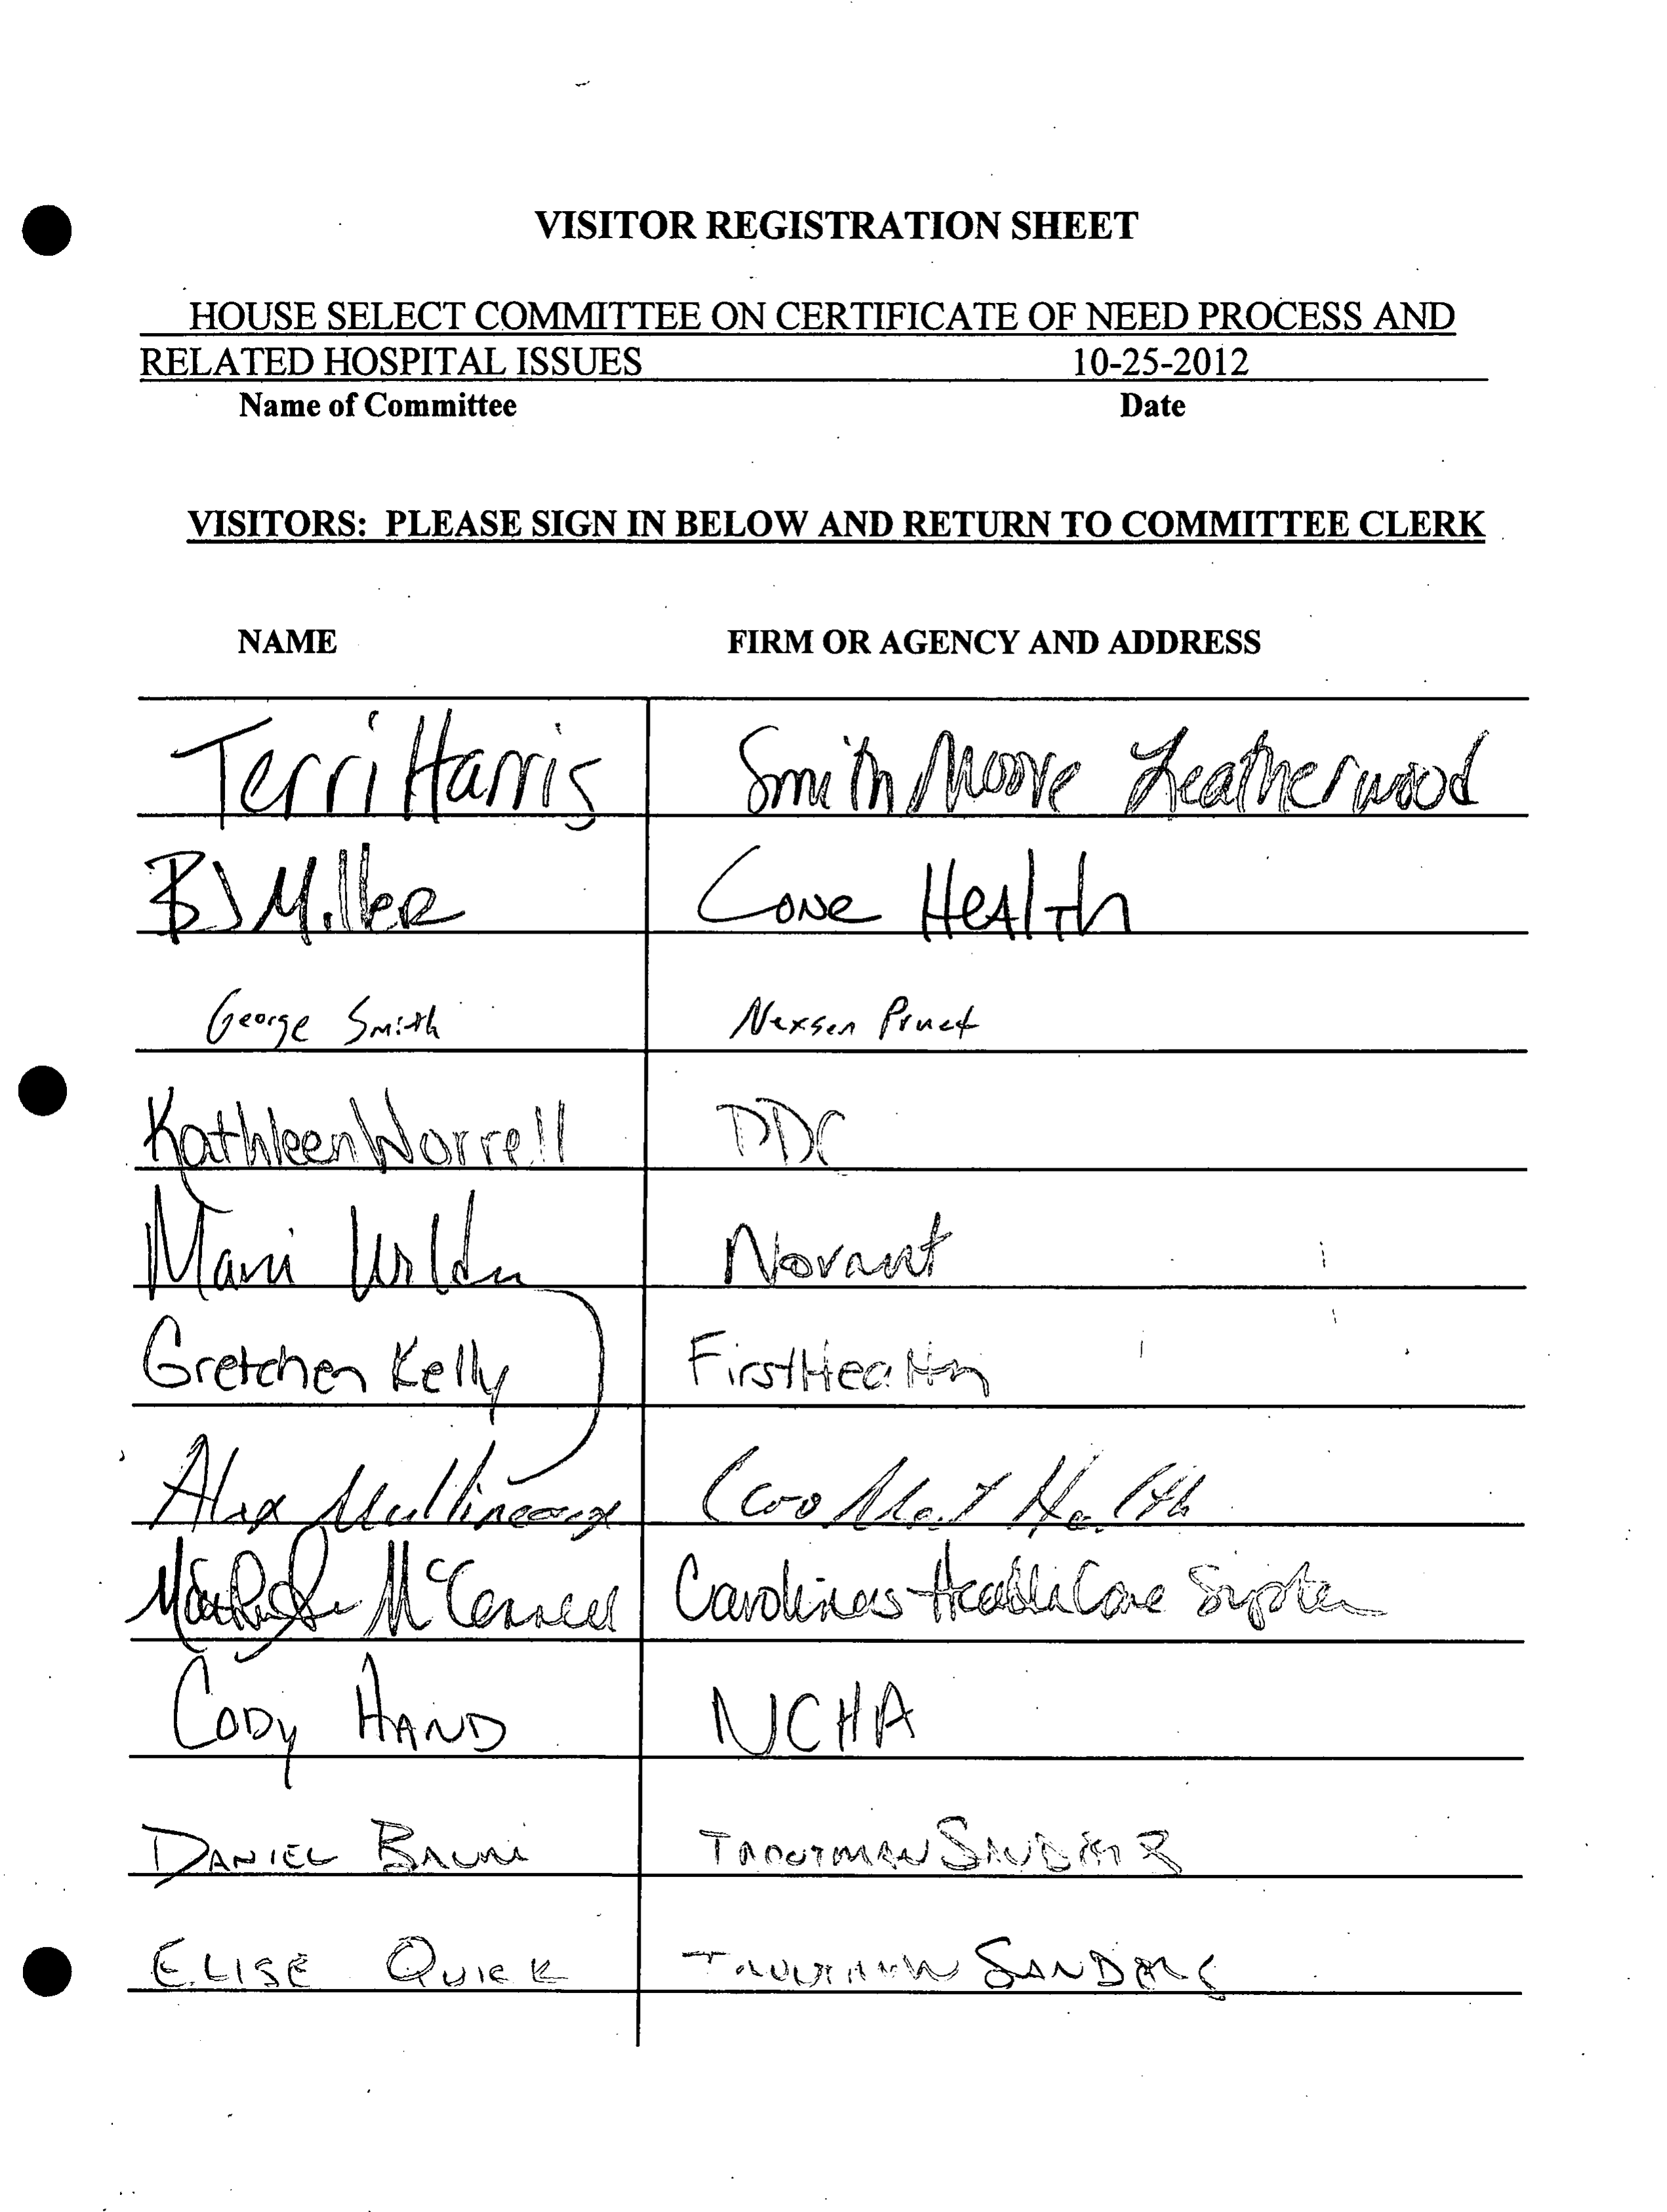 VISITOR REGISTRATION SHEET
HOUSE SELECT COMMITTEE ON CERTIFICATE OF NEED PROCESS AND
RELATED HOSPITAL ISSUES 10-25-2012
Name of Committee Date
VISITORS: PLEASE SIGN IN BELOW AND RETURN TO COMMITTEE CLERK
NAME FIRM OR AGENCY AND ADDRESS
Terri Harris Smith Moore Leatherwood
BJ Miller Cone Health
George Smith Nexsen Pruet
Kathleen Worrell
Novant
Gretchen Kelly FirstHealth
Alex Health
McConnell Carolinas HealthCare System
CODY HAND NCHA
DANIEL TROUTMAN SANDERS
ELISE QUICK TROUTMAN SANDERS